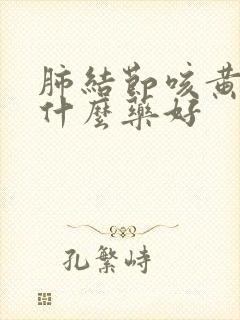 肺結節咳黃
什麼藥好
孔繁峙